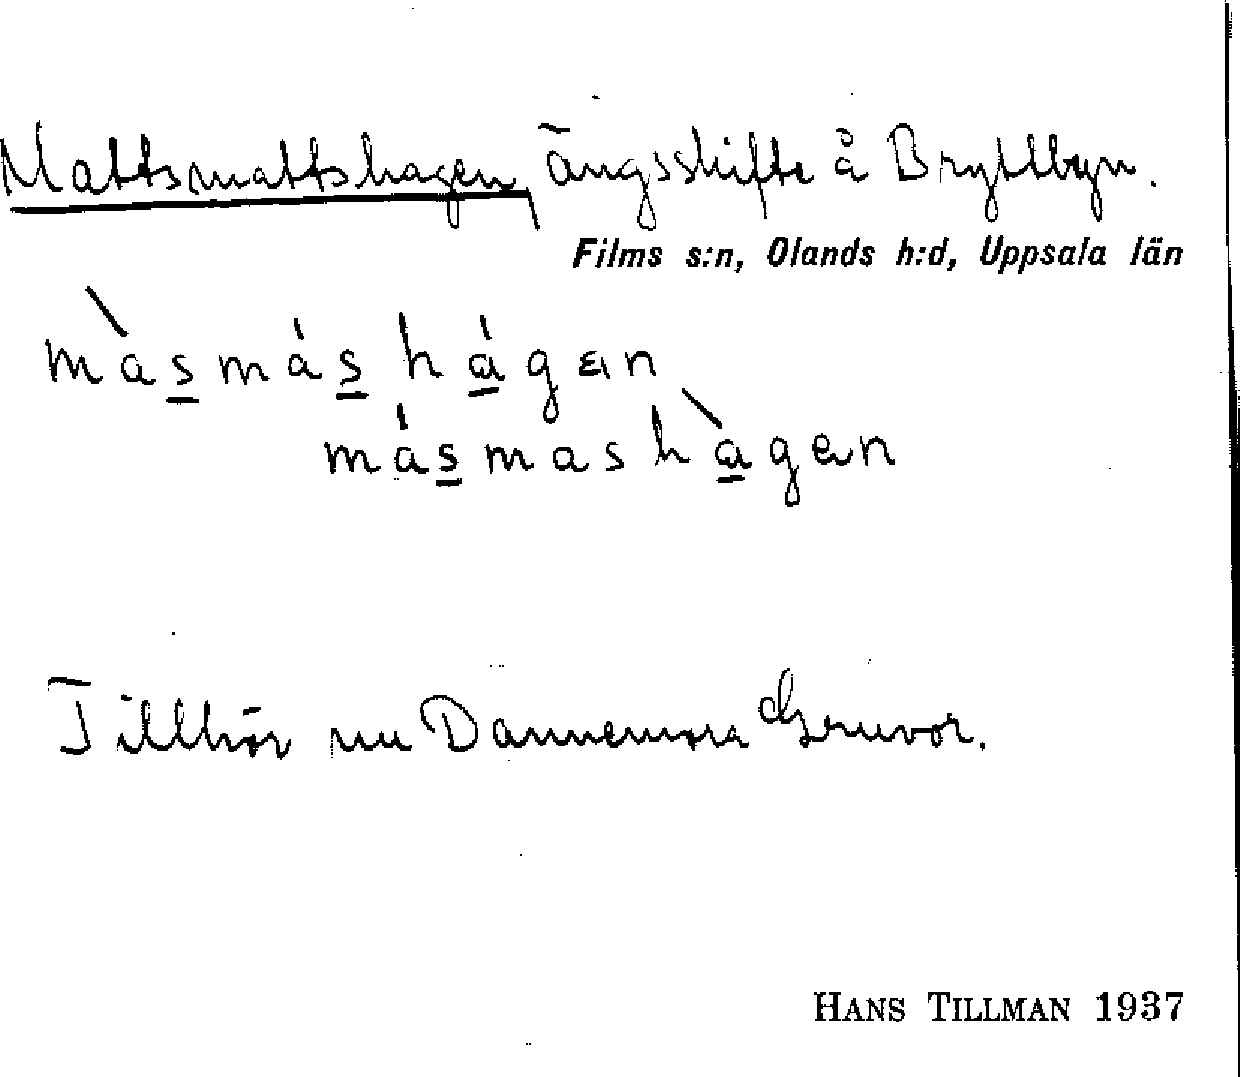 Mattsmattshagen, ängsskifte å Bryttbyn.
Films s:n, Olands h:d, Uppsala län
màs̲más̲há̲gɛn
más̲mashà̲gen
Tillhör nu Dannemora Gruvor.
HANS TILLMAN 1937